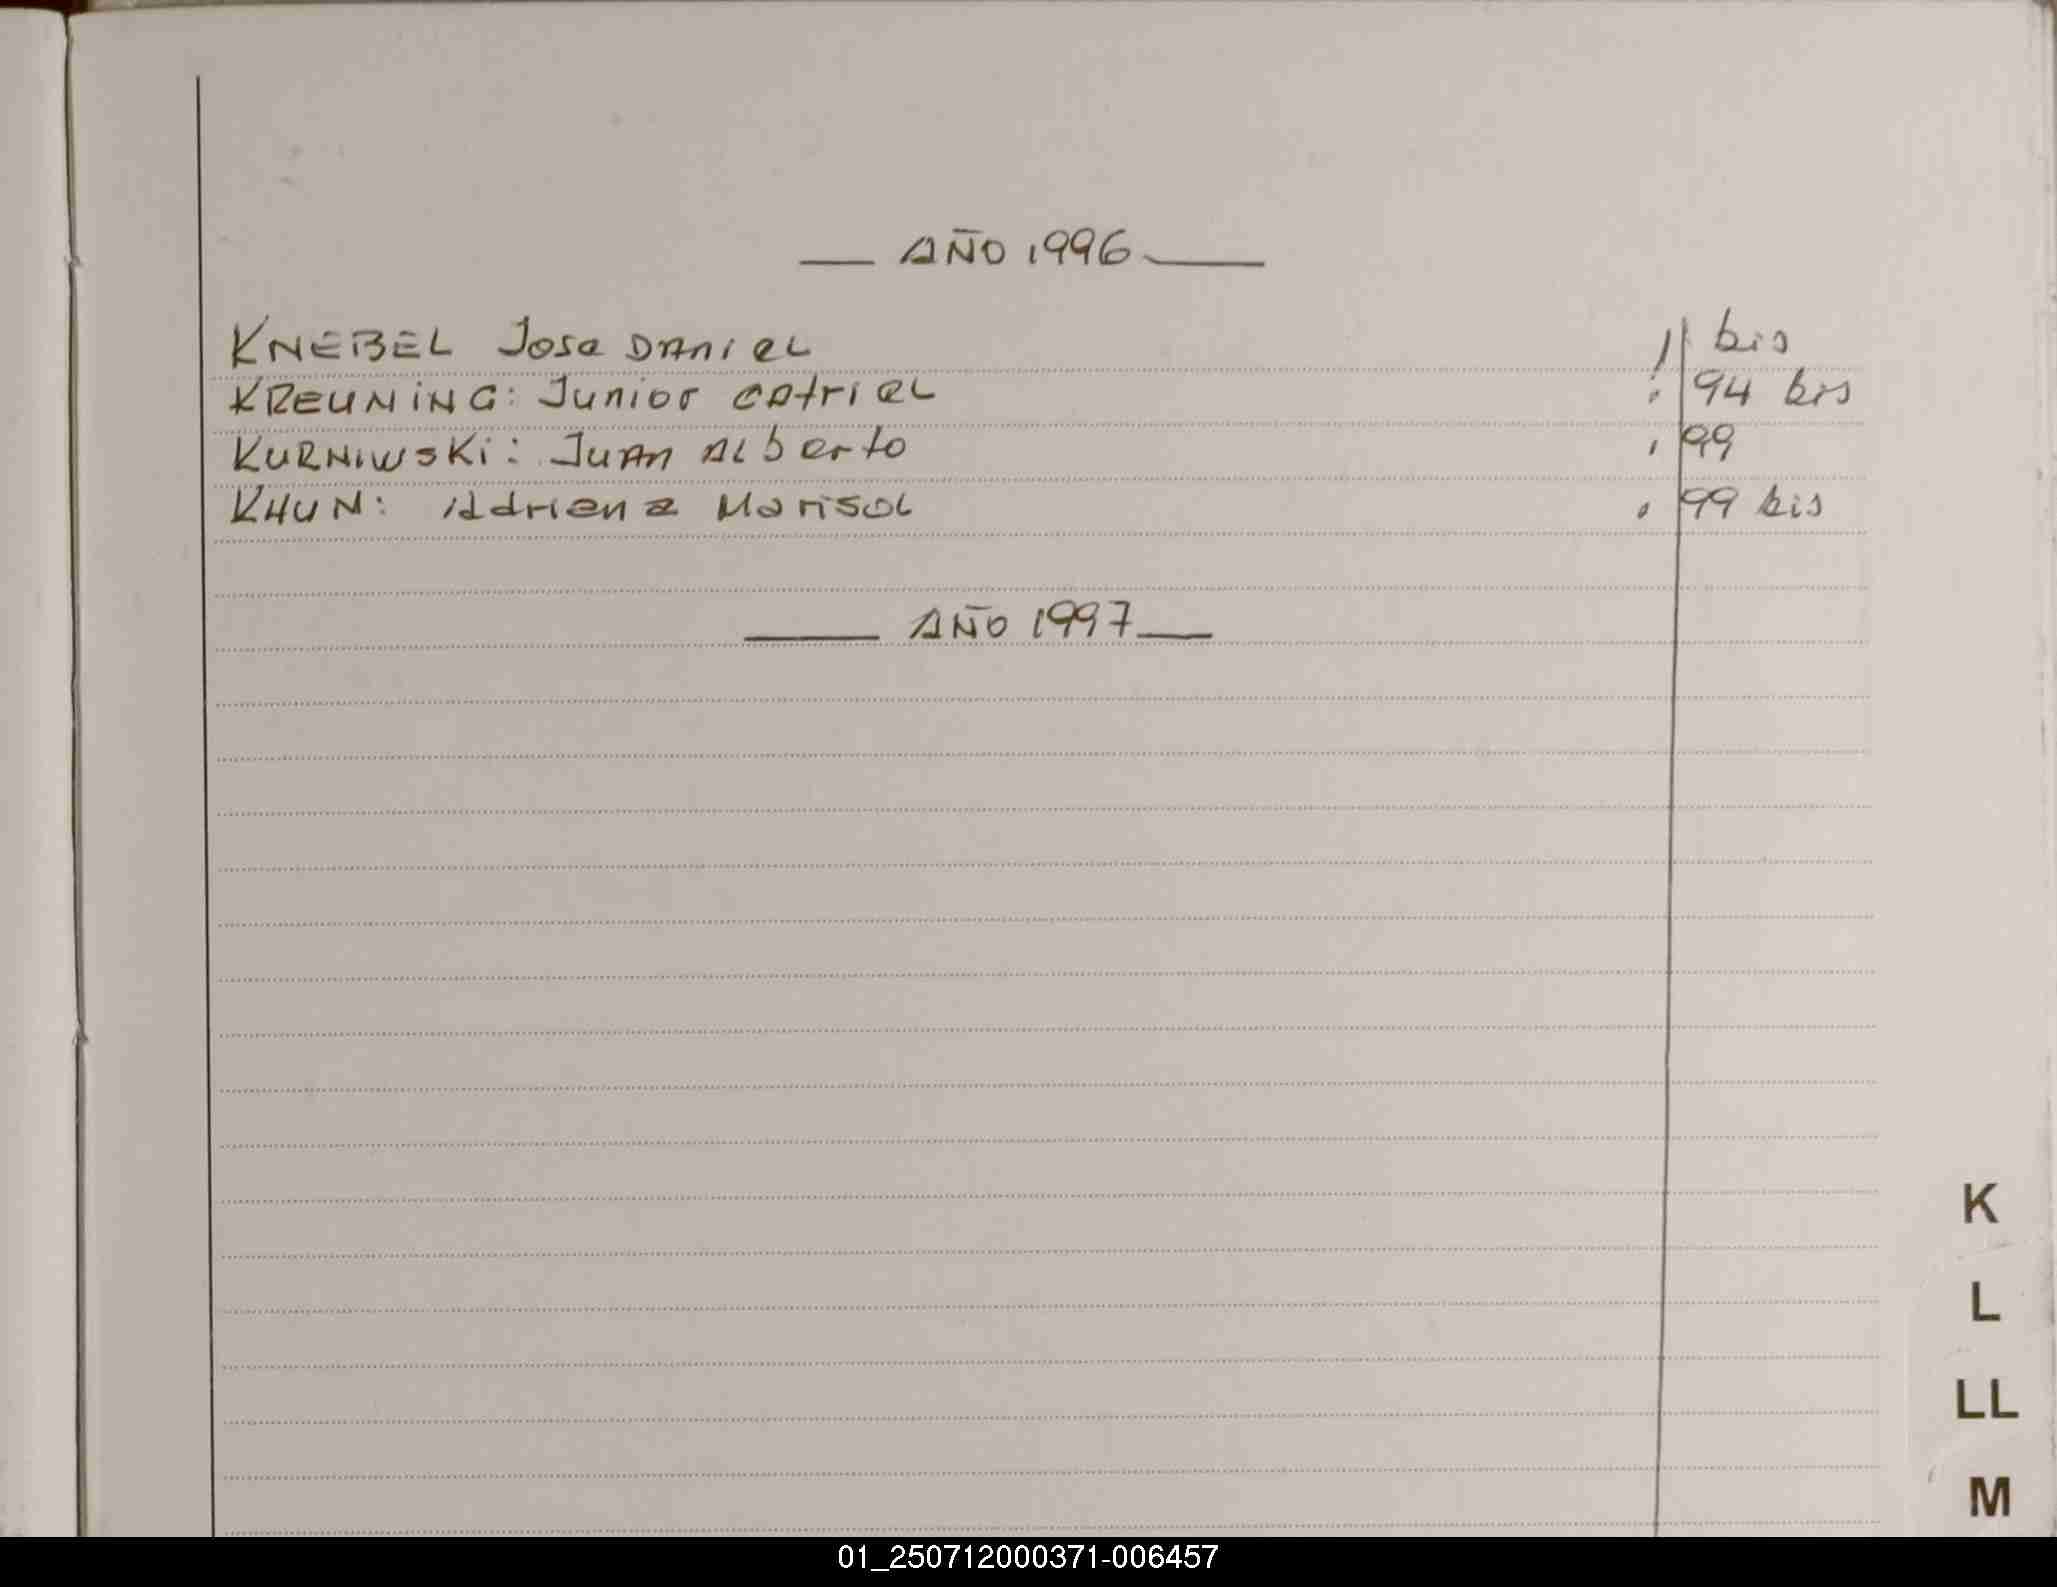 AÑO 1996
KNEBEL Jose Daniel 11 bis
KREUNING: Junior Catriel : 94 bis
KURNIWSKI: Juan Alberto , 99
KHUN: Adriana Marisol , 99 bis
AÑO 1997
K
L
LL
M
01_250712000371-006457